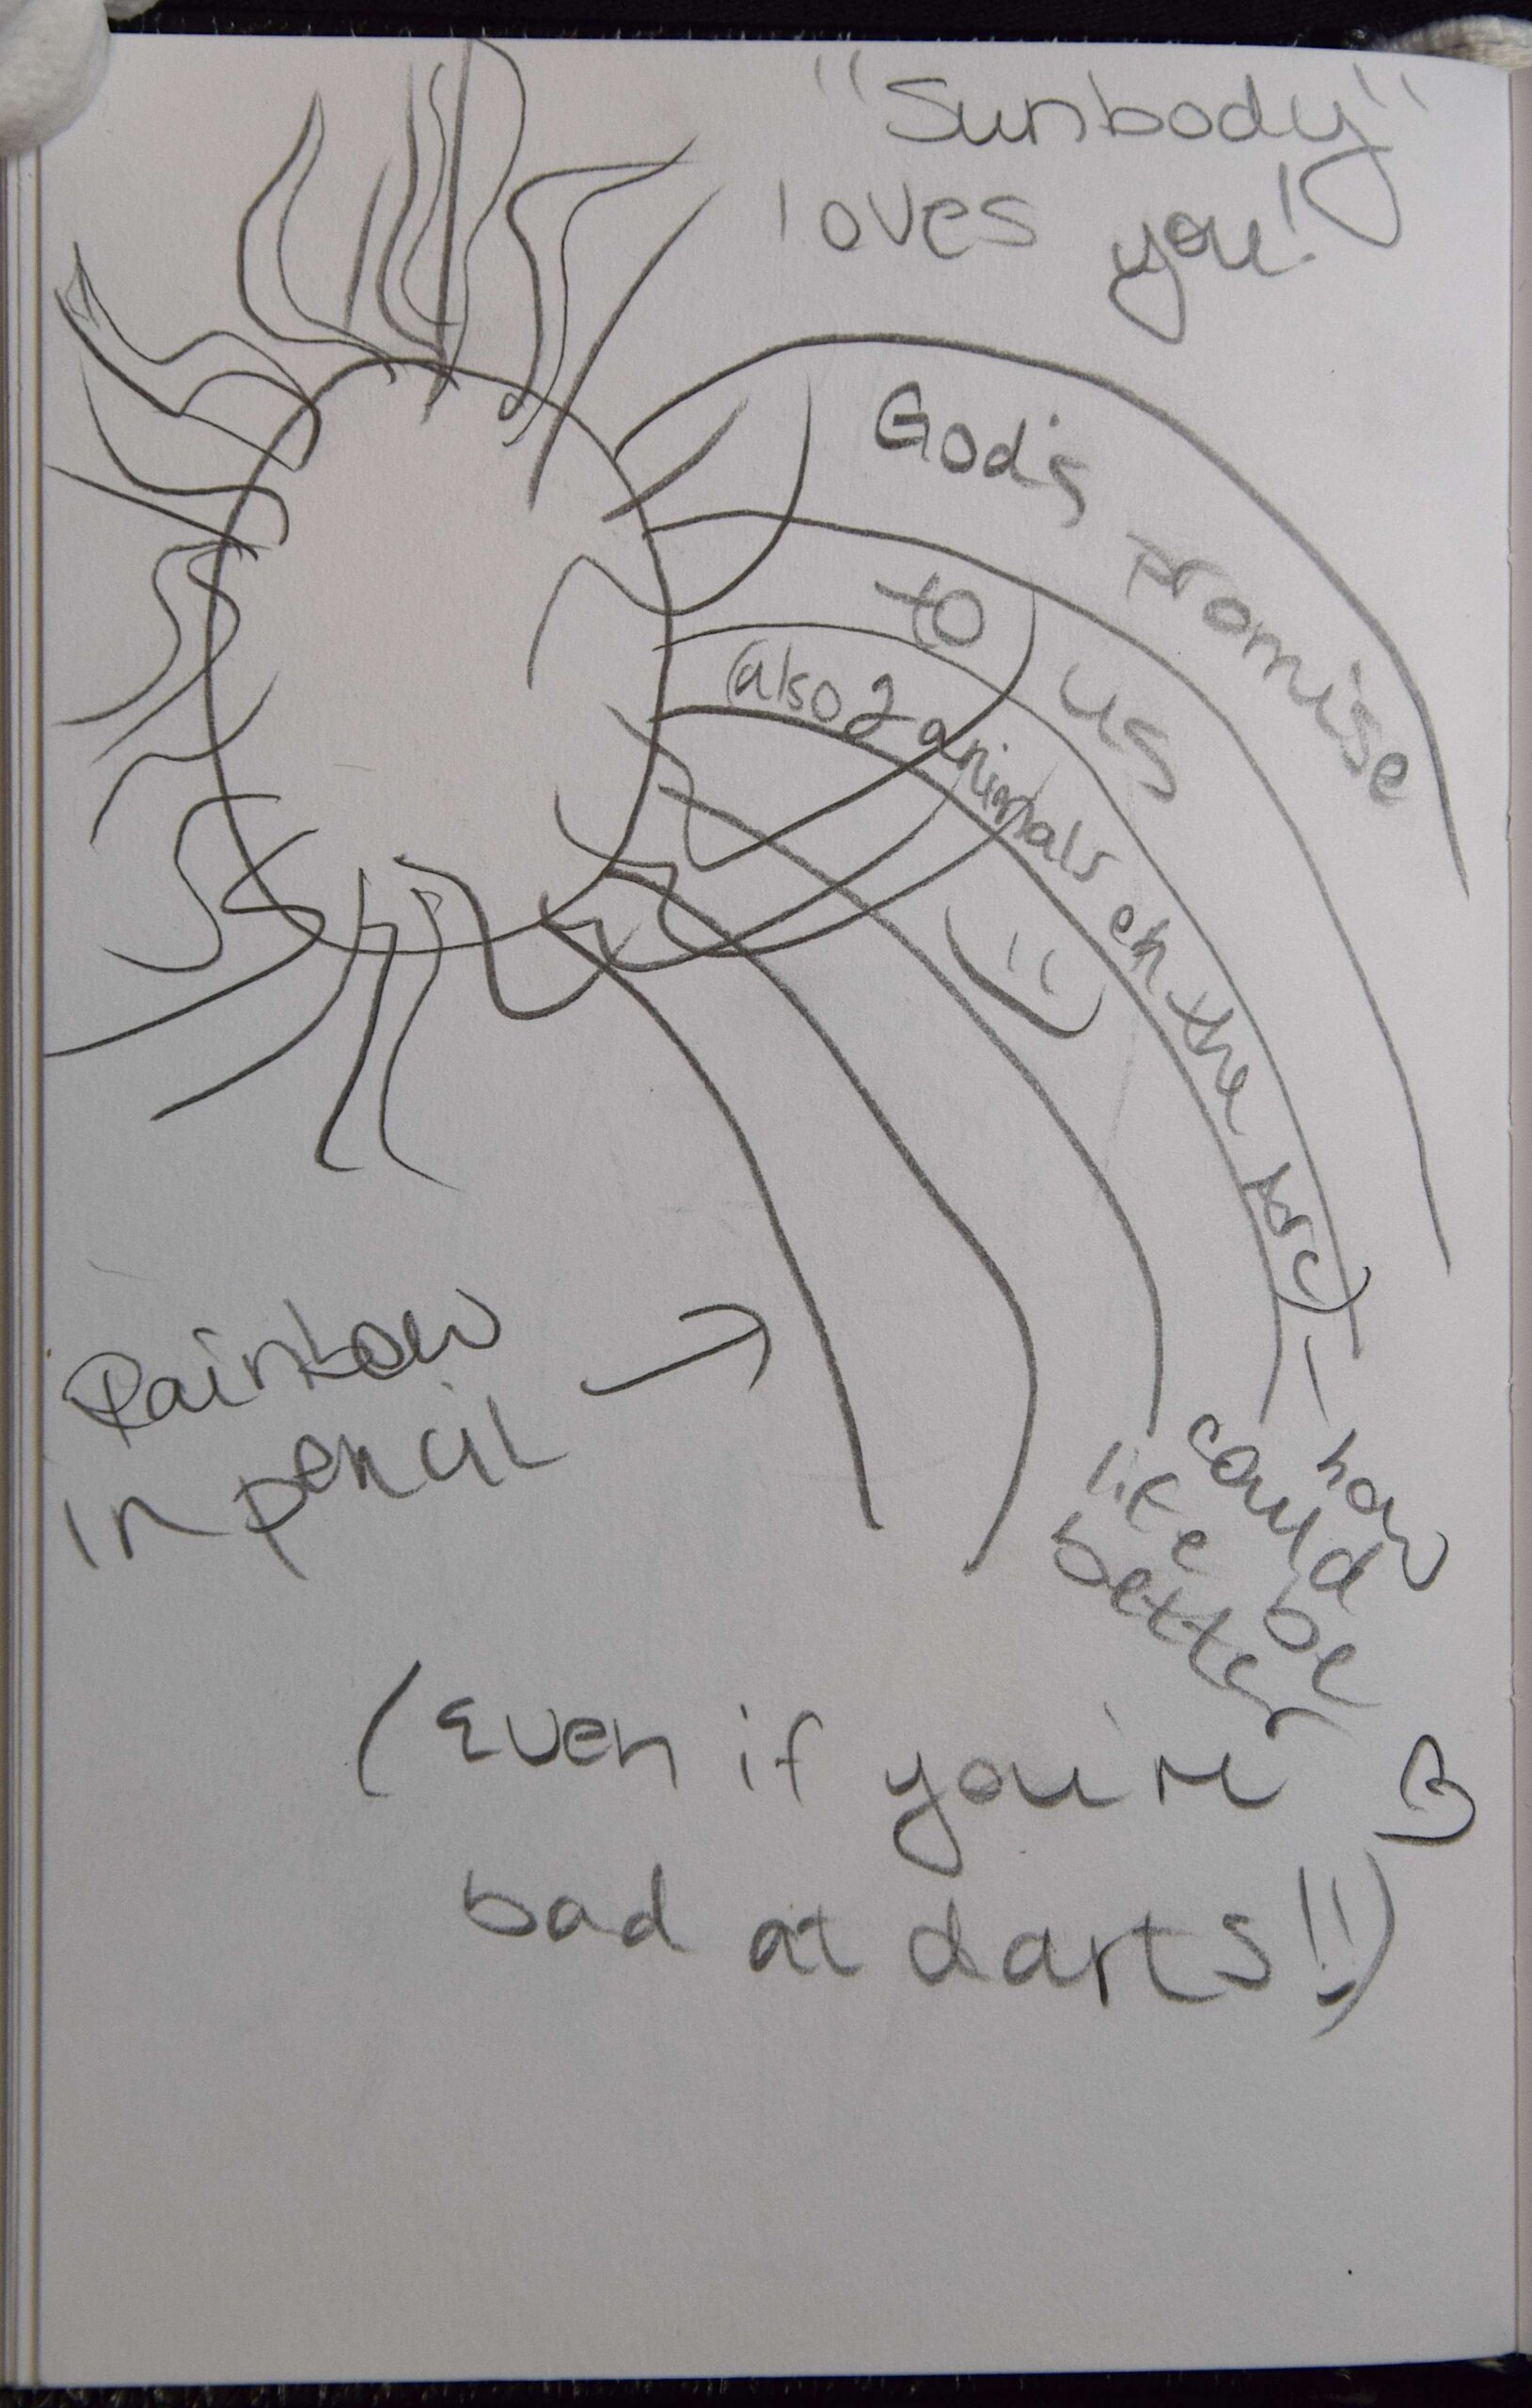 "Sunbody"
loves you!
God's promise
to us
(also 2 animals on the Arc)
– how
could be
life
better
Rainbow
in pencil
(Even if you're
bad at darts!!)